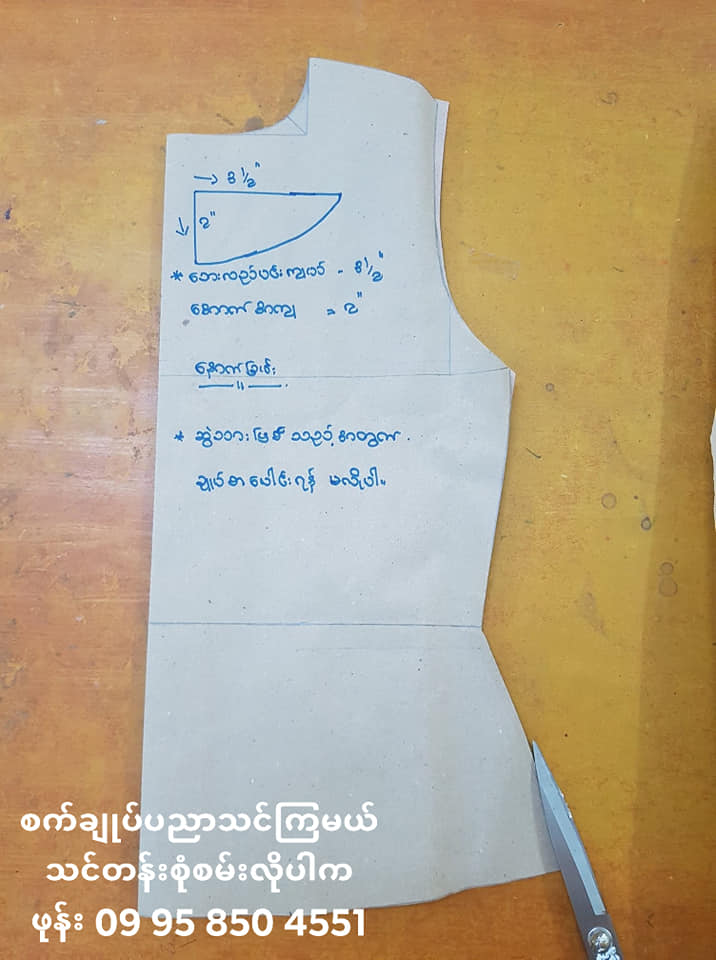 → 3 ½"
↓ ၃"
* ဘေးလည်ပင်းကျယ် - 3 ½"
အောက်စာကျ = ၃"
နောက်ဖုံး
"
* ဆွဲသားဖြစ်သည့်အတွက်
ချုပ်စာပေါင်းရန် မလိုပါ။
စက်ချုပ်ပညာသင်ကြမယ်
သင်တန်းစုံစမ်းလိုပါက
ဖုန်း 09 95 850 4551